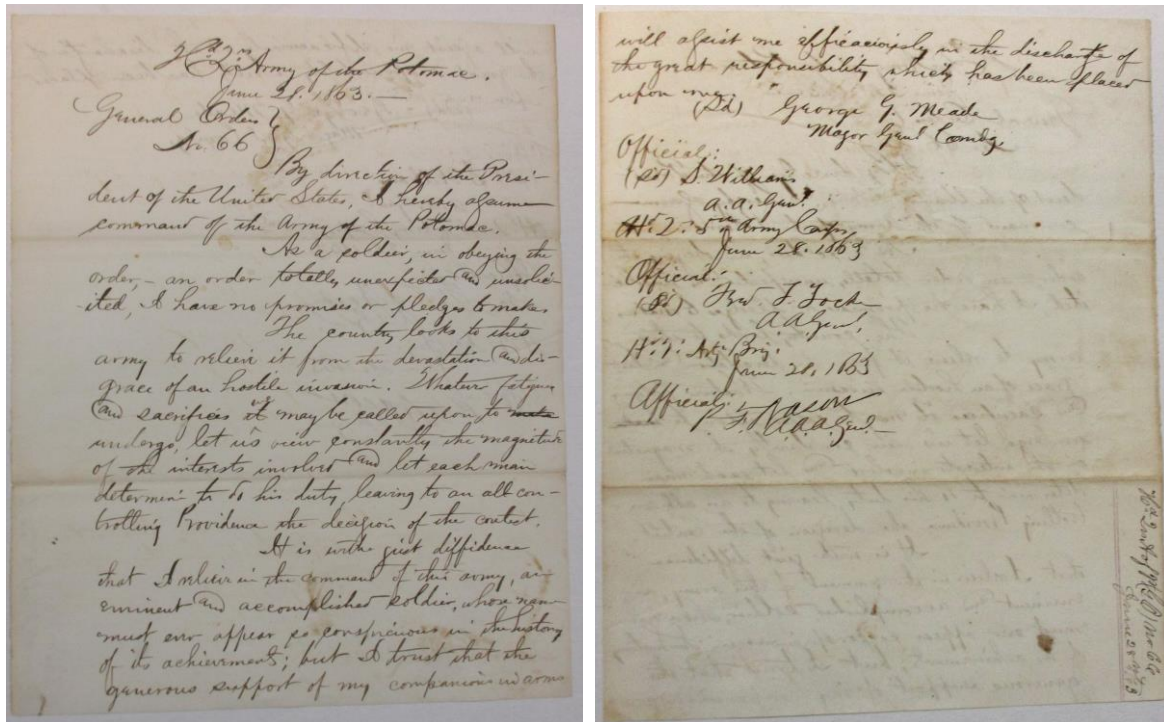 Hd. Qrs. Army of the Potomac.
June 28. 1863.—
General Orders }
No. 66 }
By direction of the Presi-
dent of the United States, I hereby assume
command of the Army of the Potomac.
As a soldier, in obeying the
order,— an order totally unexpected and unsolic-
ited, I have no promises or pledges to make.
The country looks to this
army to relieve it from the devastation and dis-
grace of an hostile invasion. Whatever fatigues
and sacrifices we may be called upon to
undergo, let us view constantly the magnitude
of the interests involved and let each man
determine to do his duty, leaving to an all con-
trolling Providence the decision of the contest.
It is with just diffidence
that I relieve in the command of this army, an
eminent and accomplished soldier, whose name
must ever appear so conspicuous in the history
of its achievements; but I trust that the
generous support of my companions in arms
will assist me efficaciously in the discharge of
the great responsibility which has been placed
upon me.
(Sd) George G. Meade
Major Genl Comdg.
Official:
(Sd) S. Williams
A. A. Genl.
Hd. Q. 5th Army Corps
June 28. 1863
Official:
(Sd) Fred. T. Locke
A A Genl.
Hd. Q. Arty Brig.
June 28, 1863
Official:
A. A. A. Genl.
June 28 1863